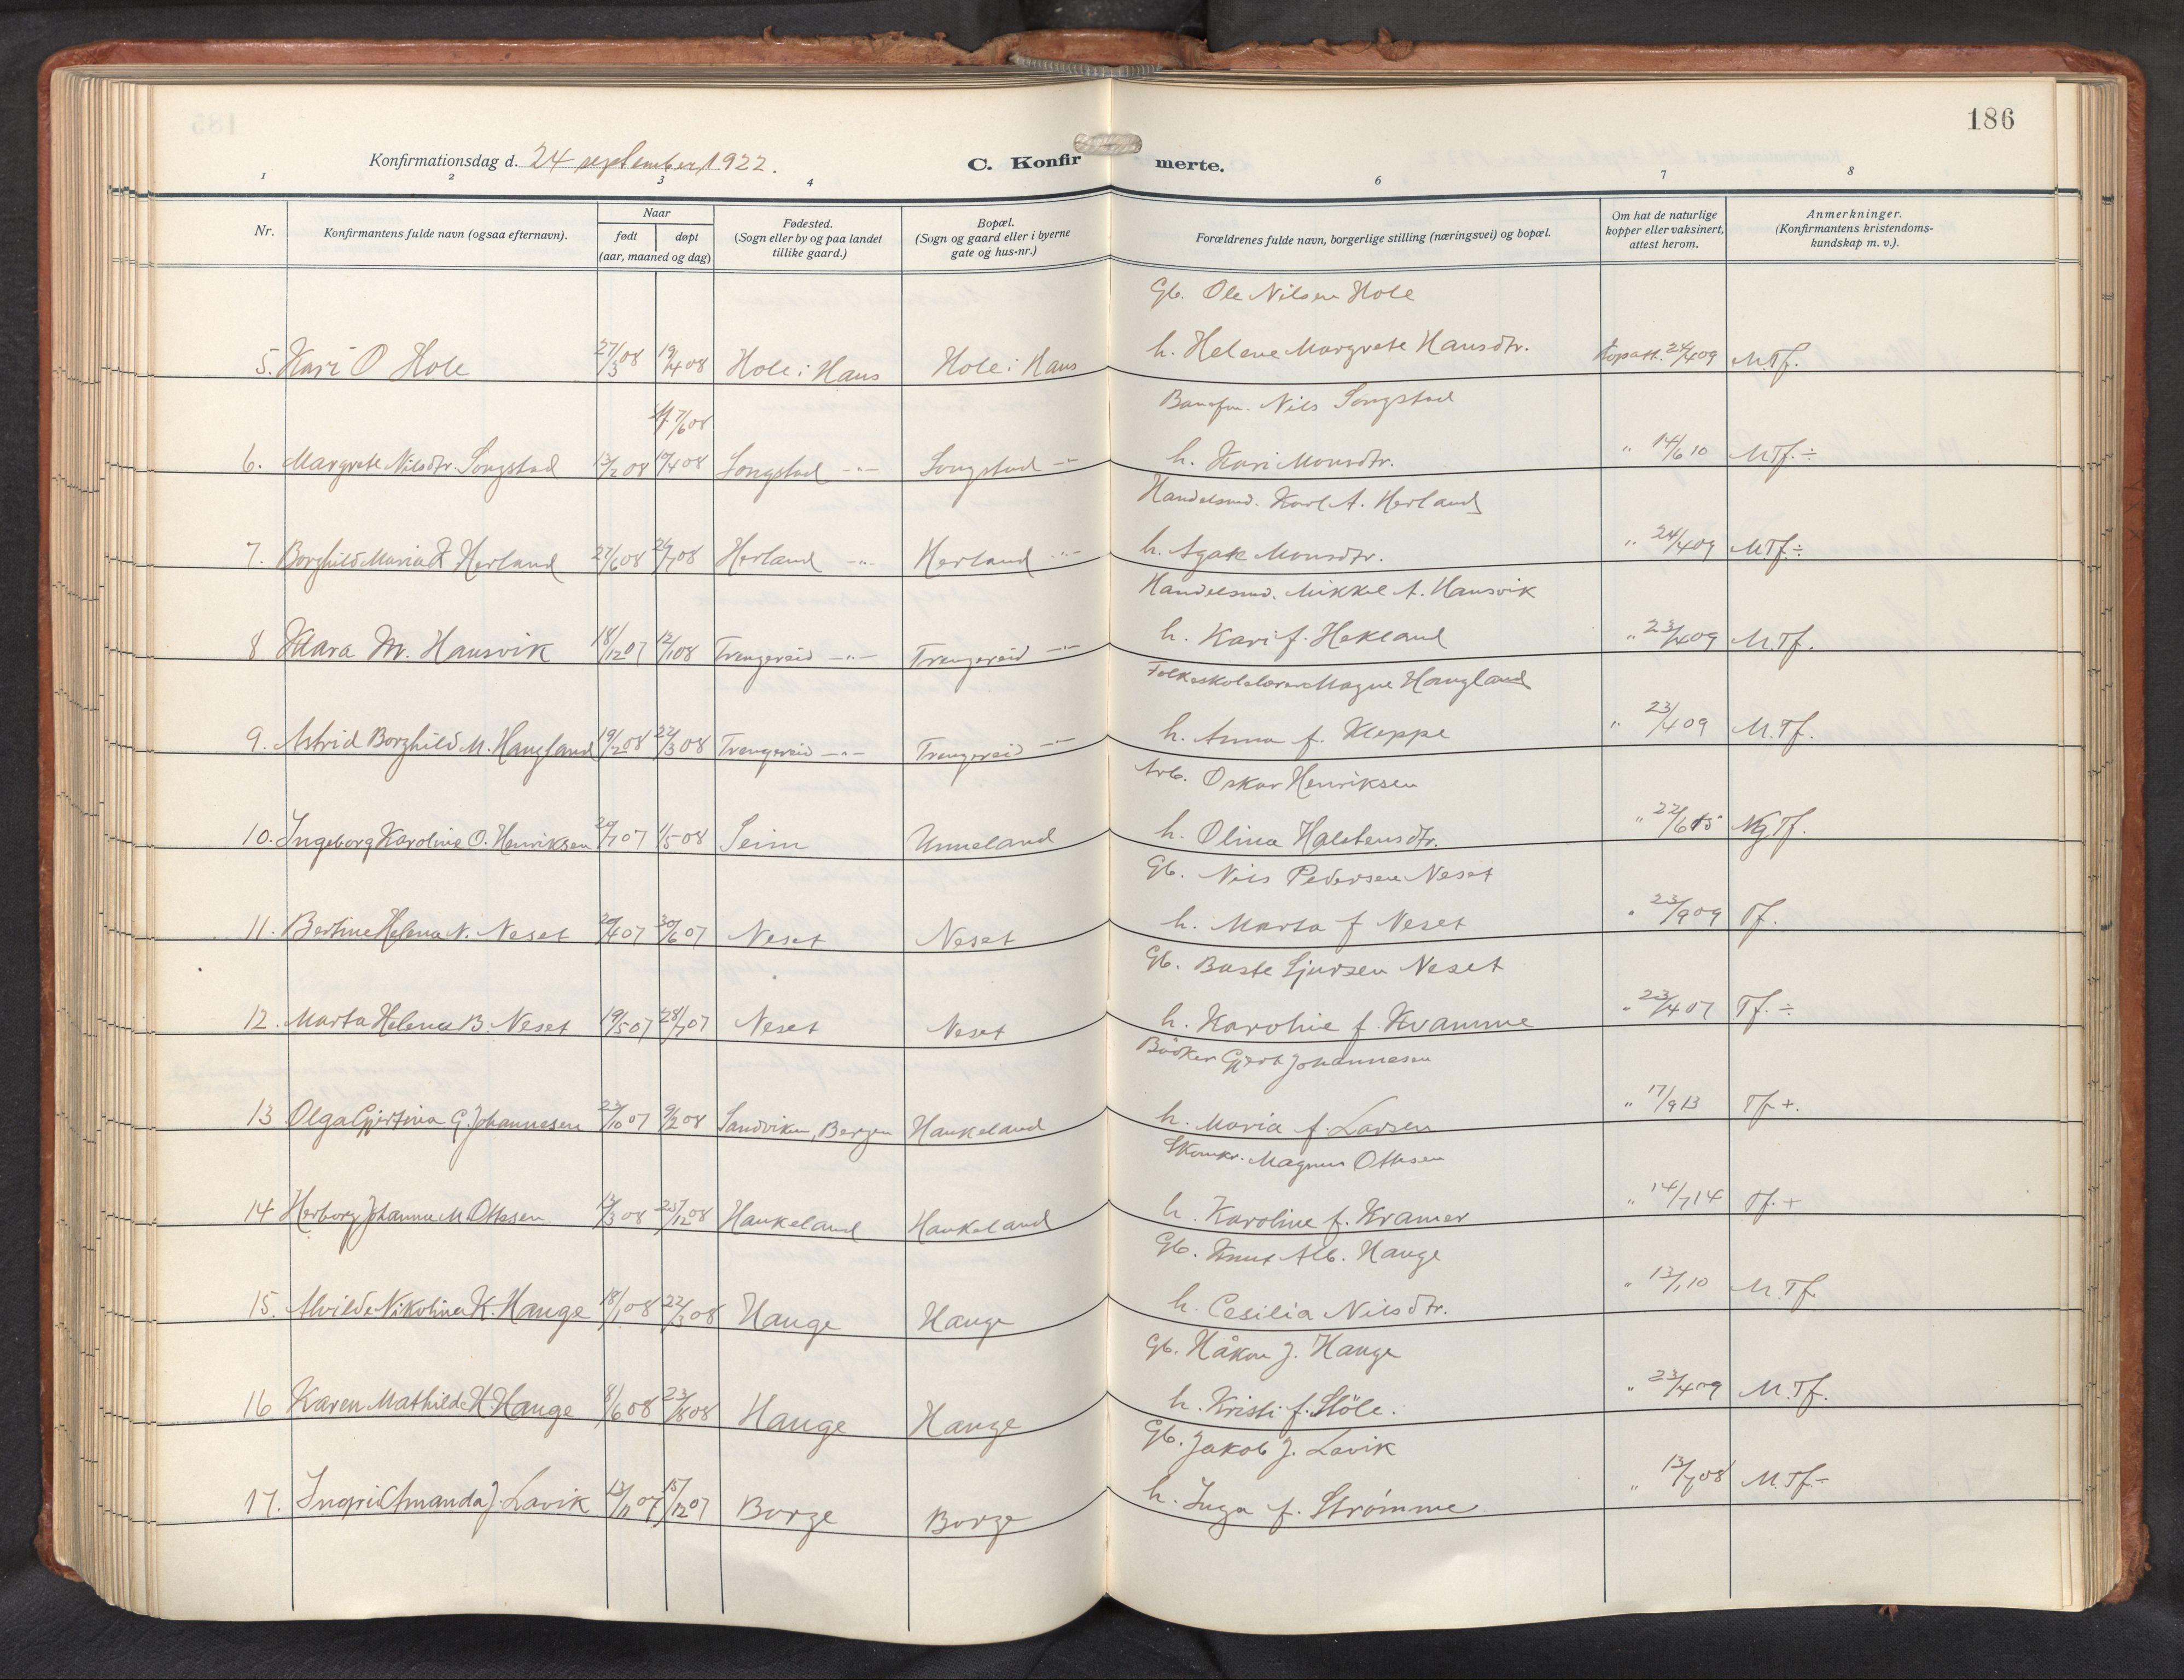 186
Konfirmationsdag d. 24 september 1922.
C. Konfirmerte.
1 2 3 4 6 7 8
Nr.
Konfirmantens fulde navn (ogsaa efternavn).
Naar
født døpt
(aar, maaned og dag)
Fødested.
(Sogn eller by og paa landet
tillike gaard.)
Bopæl.
(Sogn og gaard eller i byerne
gate og hus-nr.)
Forældrenes fulde navn, borgerlige stilling (næringsvei) og bopæl.
Om hat de naturlige
kopper eller vaksinert,
attest herom.
Anmerkninger.
(Konfirmantens kristendoms-
kundskap m. v.).
Gb. Ole Nilsen Hole
5. Kari O Hole 27/3 08 19/4 08 Hole i Haus Hole i Haus h. Helene Margrete Hansdtr. Kopatt. 24/4 09 M.Tf.
7/6 08 Nils Songstad
6. Margrete Nilsdtr. Songstad 13/2 08 19/4 08 Songstad -"- Songstad -"- h. Kari Monsdtr. " 14/6 10 M.Tf. ÷
Handelsmd. Karl A. Herland
7. Borghild Maria K Herland 27/6 08 26/7 08 Herland -"- Herland -"- h. Agate Monsdtr. " 24/4 09 M.Tf. ÷
Handelsmd. Mikkel A. Hausvik
8 Klara M. Hausvik 18/12 07 12/1 08 Trengereid -"- Trengereid -"- h. Kari f. Hekland " 23/4 09 M.Tf.
Folkeskolelærer Magne Haugland
9. Astrid Borghild M. Haugland 19/2 08 22/3 08 Trengereid -"- Trengereid -"- h. Anna f. Kleppe " 23/4 09 M.Tf.
Arb. Oskar Henriksen
10. Ingeborg Karoline O. Henriksen 20/7 07 1/5 08 Seim Unneland h. Olina Halstensdtr. " 22/6 15 Ng Tf.
Gb. Nils Pedersen Neset
11. Bertine Helena N. Neset 20/4 07 30/6 07 Neset Neset h. Marta f Neset " 23/9 09 Tf.
Gb. Baste Sjursen Neset
12. Marta Helena B. Neset 19/5 07 28/7 07 Neset Neset h. Karoline f. Kvamme " 23/4 07 Tf. ÷
Bøker Gjert Johannesen
13 Olga Gjertina G. Johannesen 23/10 07 9/2 08 Sandviken, Bergen Haukeland h. Maria f. Larsen " 17/9 13 Tf. +.
Skomkr. Magnus Ottesen
14 Herborg Johanne M. Ottesen 12/3 08 25/12 08 Haukeland Haukeland h. Karoline f. Kramer " 14/7 14 Tf. +
Gb. Knut Alb. Hauge
15. Alvilde Nikoline K. Hauge 18/1 08 22/3 08 Hauge Hauge h. Cesilia Nilsdtr. " 13/1 10 M.Tf.
Gb. Håkon J. Hauge
16 Karen Mathilde H. Hauge 8/6 08 23/8 08 Hauge Hauge h. Kristi f. Støle. " 23/4 09 M.Tf.
Gb. Jakob J. Lavik
17. Ingrid Amanda J. Lavik 13/11 07 15/12 07 Borge Borge h. Inga f. Strømme " 13/7 08 M.Tf. ÷